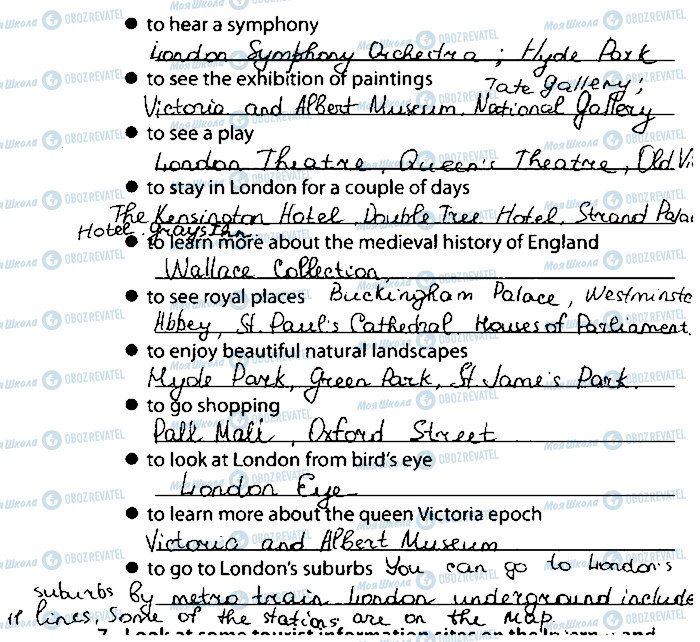 • to hear a symphony
London Symphony Orchestra; Hyde Park
• to see the exhibition of paintings Tate gallery;
Victoria and Albert Museum, National gallery
• to see a play
London Theatre, Queen's Theatre, Old Vi
• to stay in London for a couple of days
The Kensington Hotel, Double Tree Hotel. Strand Palac
Hotel. Grays Inn.
• to learn more about the medieval history of England
Wallace Collection,
• to see royal places Buckingham Palace, Westminste
Abbey, St. Paul's Cathedral. Houses of Parliament.
• to enjoy beautiful natural landscapes
Hyde Park, Green Park, St Jame's Park.
• to go shopping
Pall Mall, Oxford Street
• to look at London from bird's eye
London Eye
• to learn more about the queen Victoria epoch
Victoria and Albert Museum
• to go to London's suburbs You can go to London's
suburbs by metro train London underground include
11 lines. Some of the stations are on the map
Моя Школа OBOZREVATEL